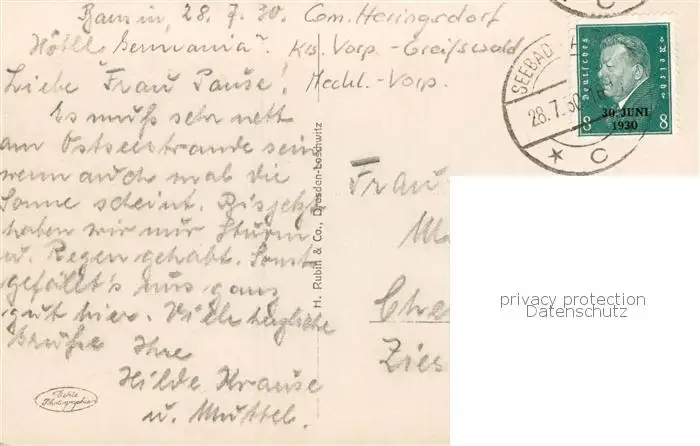 Bansin, 28. 7. 30.
Gem. Heringsdorf
Hôtel "Germania".
Krs. Vorp.-Greifswald
Meckl.-Vorp.
Liebe Frau Pause!
Es muß sehr nett
am Ostseestrande sein
wenn auch mal die
Sonne scheint. Bis jetzt
haben wir nur Sturm
u. Regen gehabt. Sonst
gefällt's uns ganz
gut hier. Viele herzliche
Grüße Ihre
Hilde Krause
u. Muttel.
Echte
Photographie
H. Rubin & Co., Dresden-Loschwitz
SEEBAD
28.7.30
C
C
Deutsches
Reich
30. JUNI
1930
8 8
Frau
Che
Zies
privacy protection
Datenschutz